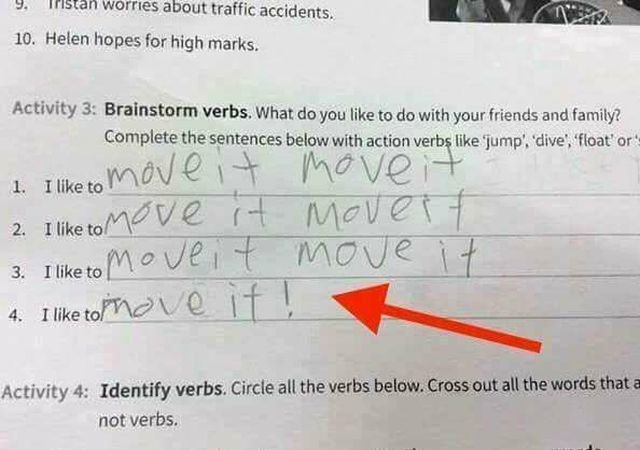 9. Tristan worries about traffic accidents.
10. Helen hopes for high marks.
Activity 3: Brainstorm verbs. What do you like to do with your friends and family?
Complete the sentences below with action verbs like 'jump', 'dive', 'float' or
1. I like to move it move it
2. I like to move it move it
3. I like to move it move it
4. I like to move it!
Activity 4: Identify verbs. Circle all the verbs below. Cross out all the words that a
not verbs.